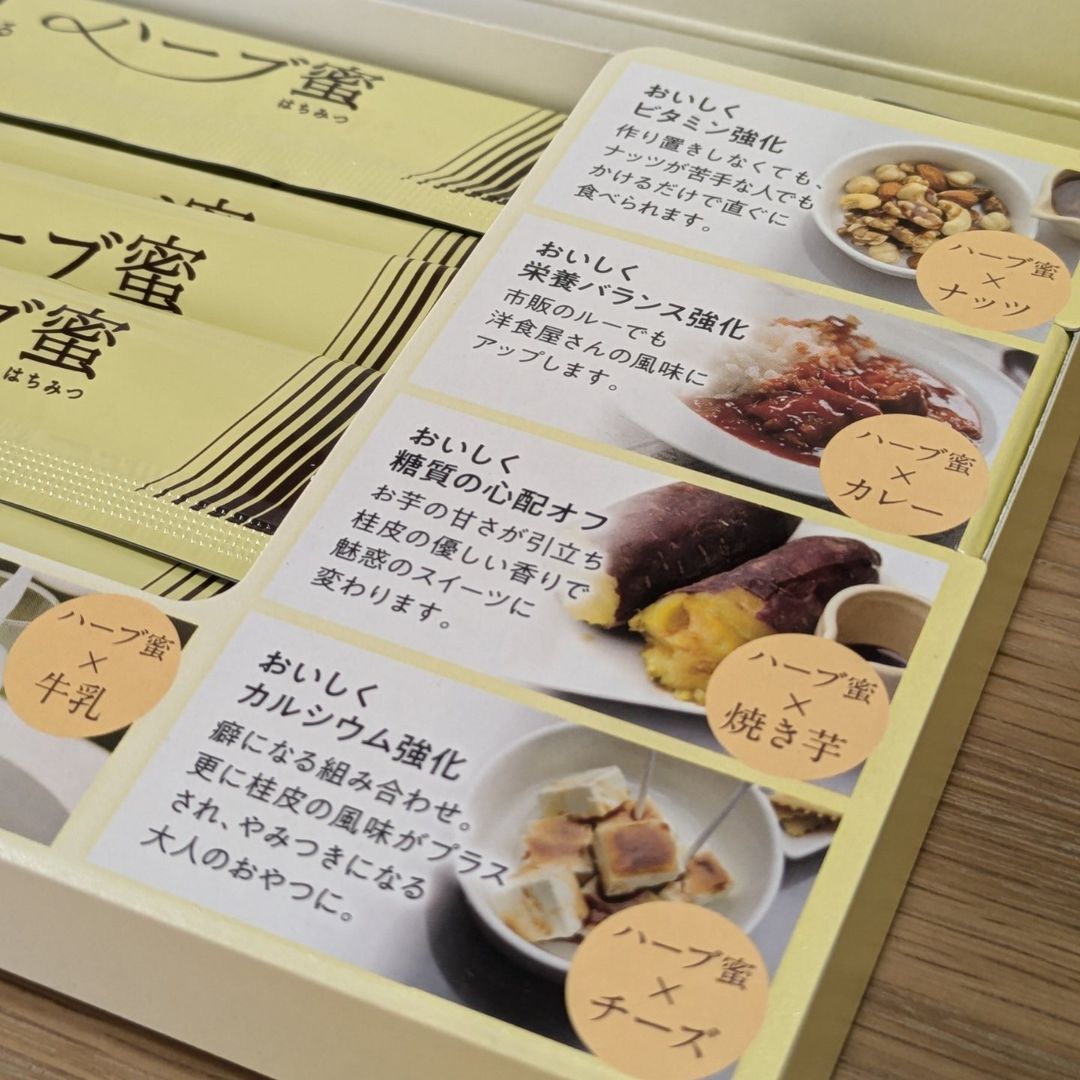 ハーブ蜜
はちみつ
蜜
ーブ蜜
ブ蜜
はちみつ
おいしく
ビタミン強化
作り置きしなくても、
ナッツが苦手な人でも
かけるだけで直ぐに
食べられます。
ハーブ蜜
×
ナッツ
おいしく
栄養バランス強化
市販のルーでも
洋食屋さんの風味に
アップします。
ハーブ蜜
×
カレー
おいしく
糖質の心配オフ
お芋の甘さが引立ち
桂皮の優しい香りで
魅惑のスイーツに
変わります。
ハーブ蜜
×
焼き芋
ハーブ蜜
×
牛乳
おいしく
カルシウム強化
癖になる組み合わせ。
更に桂皮の風味がプラス
され、やみつきになる
大人のおやつに。
ハーブ蜜
×
チーズ